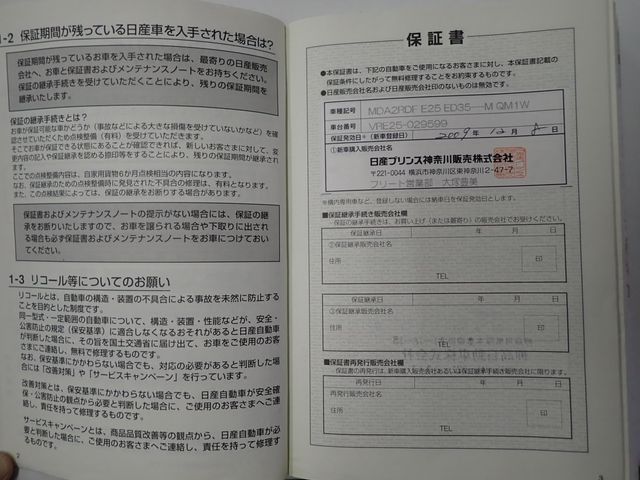 1-2 保証期間が残っている日産車を入手された場合は?
保証期間が残っているお車を入手された場合は、最寄りの日産販売
会社へ、お車と保証書およびメンテナンスノートをお持ちください。
保証の継承手続きを受けていただくことにより、残りの保証期間が
継承いたします。
保証の継承手続きとは?
お車が保証可能な車かどうか(事故などによる大きな損傷を受けていないかなど)を確
認させていただくため点検整備(有料)を受けていただきます。
そこでお車が保証できる状態にあることが確認できれば、新しいお客さまに対して、変
更内容の記入や保証継承を認める捺印等をすることにより、残りの保証期間が継承され
ます。
ここでの点検整備の内容は、自家用貨物6か月点検相当の内容になります。
なお、保証継承のための点検整備時に発見された不具合の修理は、有料となります。
また、この点検結果によっては、保証の継承をお断りする場合があります。
保証書およびメンテナンスノートの提示がない場合には、保証の継
承をお断りいたしますので、お車を譲られる場合や下取りに出され
る場合も必ず保証書およびメンテナンスノートをお車につけておい
てください。
1-3 リコール等についてのお願い
リコールとは、自動車の構造・装置の不具合による事故を未然に防止する
ことを目的とした制度です。
同一型式・一定範囲の自動車について、構造・装置・性能などが、安全・
公害防止の規定(保安基準)に適合しなくなるおそれがあると日産自動車
が判断した場合に、その旨を国土交通省に届け出て、お車をご使用のお客
さまにご連絡し、無料で修理するものです。
なお、保安基準にかかわらない場合でも、対応の必要があると判断した場
合には「改善対策」や「サービスキャンペーン」を行っています。
改善対策とは、保安基準にかかわらない場合でも、日産自動車が安全確
保・公害防止の観点から必要と判断した場合に、ご使用のお客さまへご連
絡し、責任を持って修理するものです。
サービスキャンペーンとは、商品品質改善等の観点から、日産自動車が必
要と判断した場合に、ご使用のお客さまへご連絡し、責任を持って修理す
るものです。
2
保証書
●本保証書は、下記の自動車をご使用になるお客さまに対し、本保証書記載の
保証条件にしたがって無料修理することをお約束するものです。
●日産販売会社名および日産販売会社印のないものは無効です。
車種記号 MDA2RDF E25 ED35---M QM1W
車台番号 VRE25-029599
保証発効日※(新車登録日) 2009年 12月 8日
①新車購入販売会社
日産プリンス神奈川販売株式会社
〒221-0044 横浜市神奈川区東神奈川2-47-7
フリート営業部 大塚豊美
※構内専用車など、登録しない場合には納車日を保証発効日とします。
■保証継承手続き販売会社欄
-保証の継承手続きは、お買い上げ(または最寄り)の販売会社でお受けください。
保証継承日 年 月 日
②保証継承販売会社名
住所 印
TEL
保証継承日 年 月 日
③保証継承販売会社名
住所 印
TEL
■保証書再発行販売会社欄
-保証書の再発行は、新車購入販売会社あるいは保証継承手続き販売会社に限ります。
再発行日 年 月 日
再発行販売会社名
住所 印
TEL
3